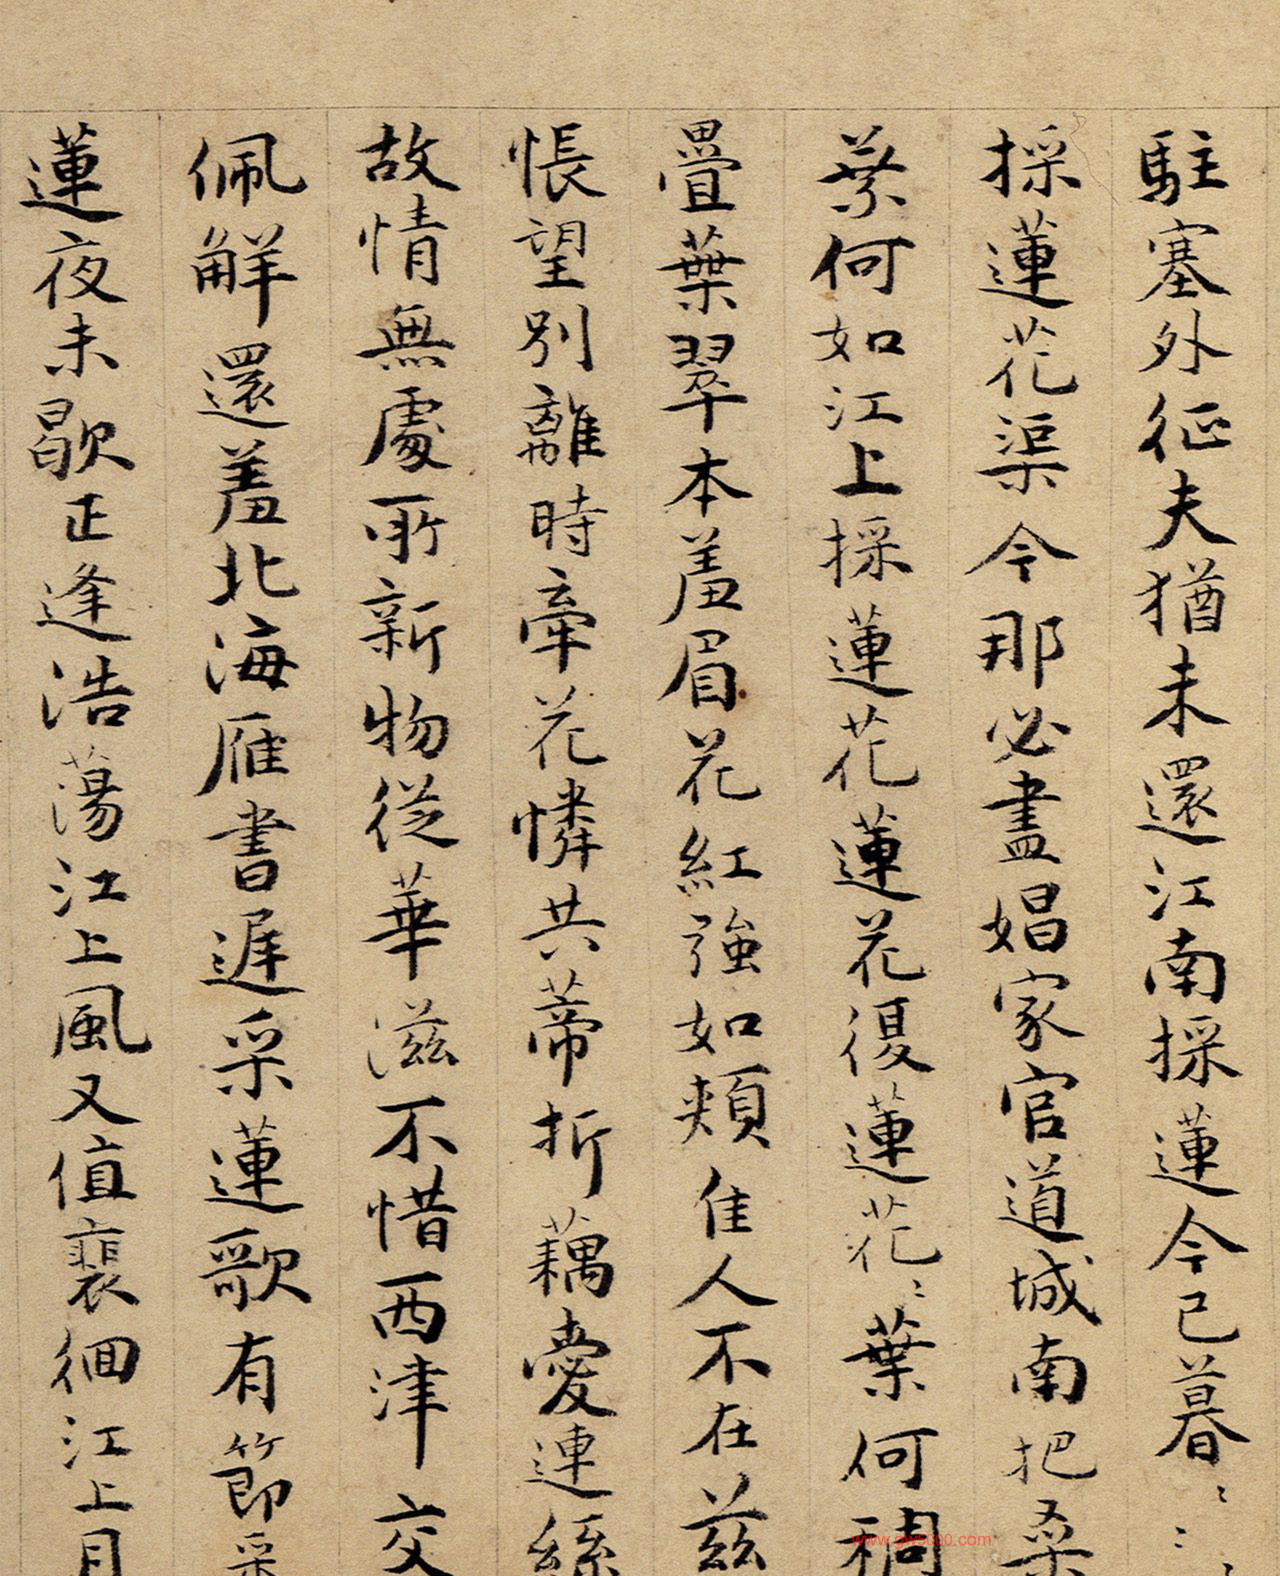 駐塞外征夫猶未還江南採蓮今已暮〻〻
採蓮花渠今那必盡娼家官道城南把桑
葉何如江上採蓮花蓮花復蓮花〻葉何稠
疊葉翠本羞眉花紅強如頰佳人不在茲
悵望別離時牽花憐共蒂折藕愛連絲
故情無處所新物從華滋不惜西津交
佩解還羞北海雁書遲采蓮歌有節采
蓮夜未歇正逢浩蕩江上風又值裴徊江上月
www.gw5000.com